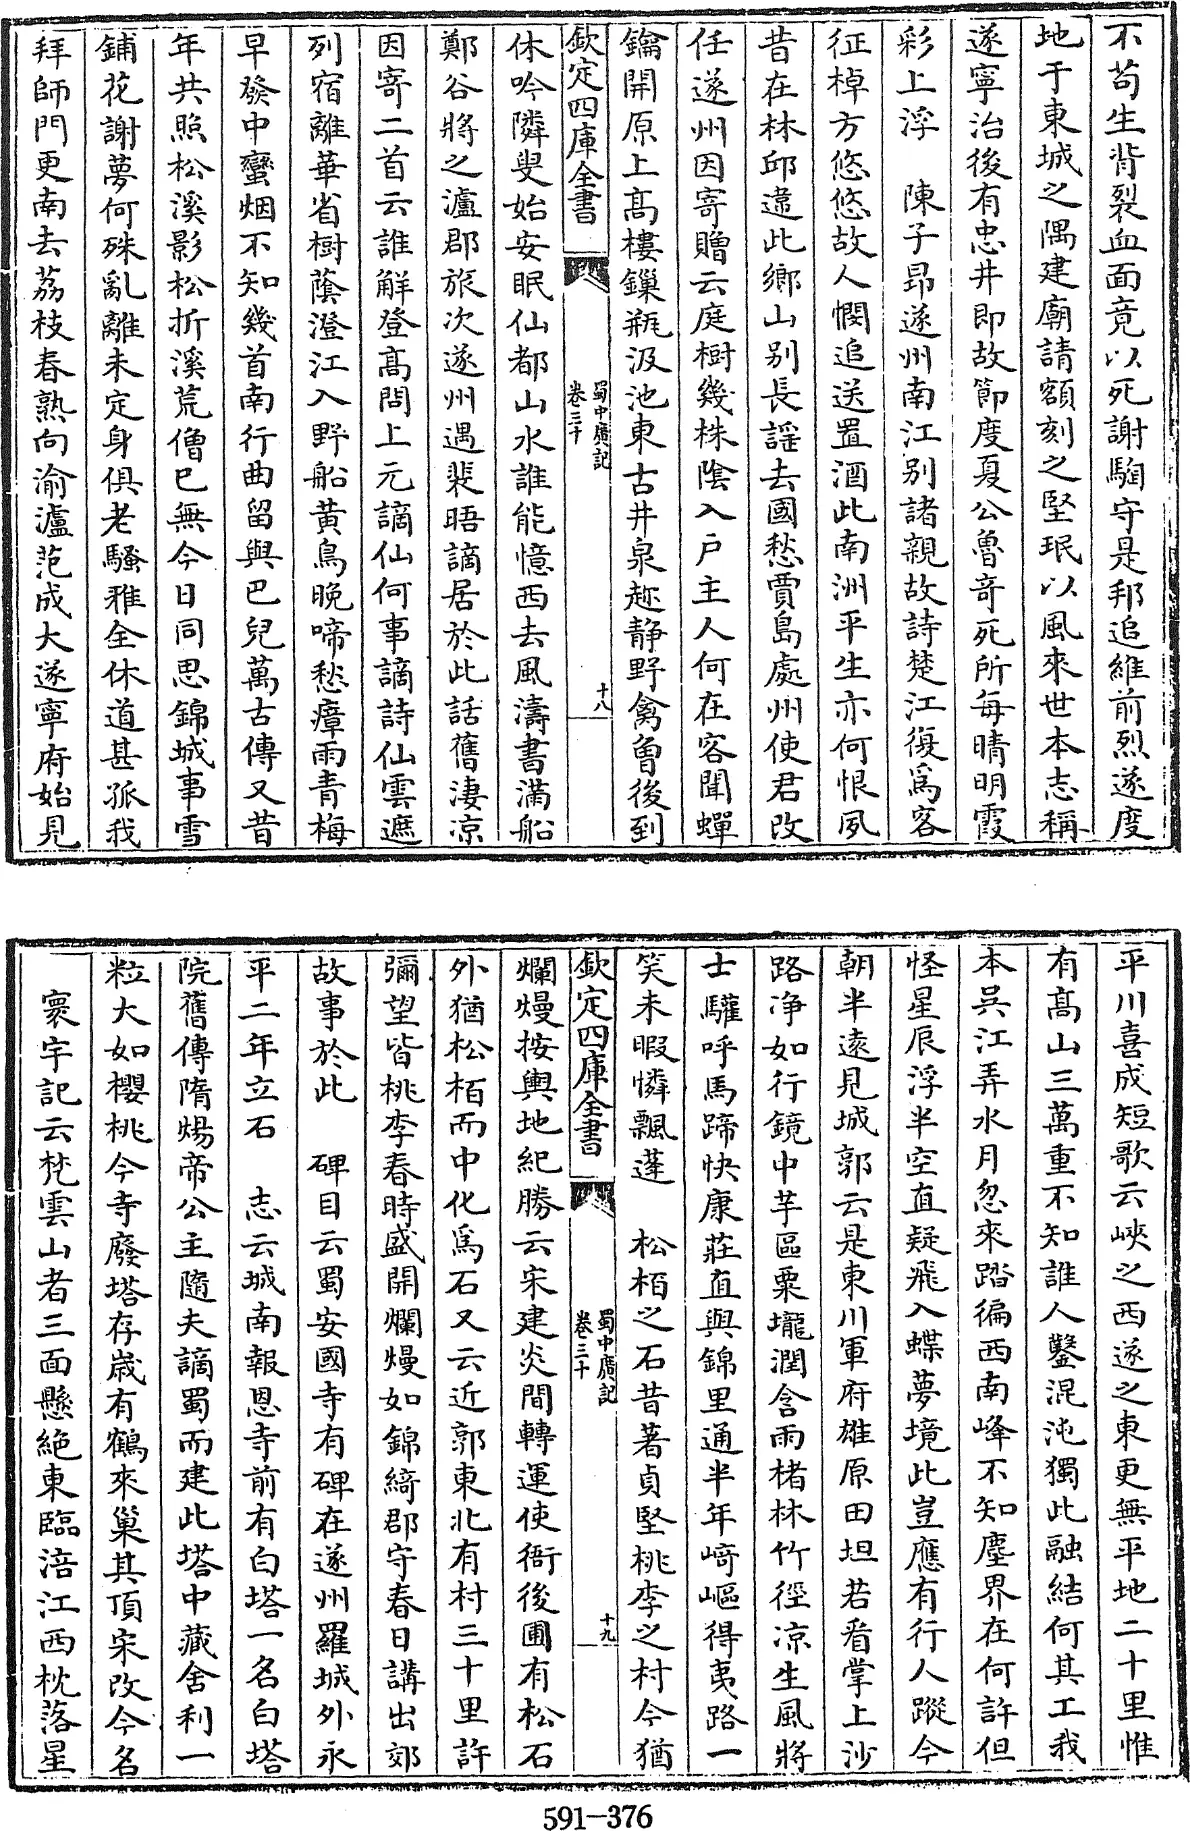 不苟生背裂血面竟以死謝駒守是邦追維前烈遂度
地于東城之隅建廟請額刻之堅珉以風來世本志稱
遂寧治後有忠井即故節度夏公魯竒死所每晴明霞
彩上浮　陳子昻遂州南江别諸親故詩楚江復爲客
征棹方悠悠故人憫追送置酒此南洲平生亦何恨夙
昔在林邱違此鄉山别長謡去國愁賈島處州使君改
任遂州因寄贈云庭樹幾株陰入户主人何在客聞蟬
鑰開原上髙樓鏁瓶汲池東古井泉趂静野禽曾後到
欽定四庫全書
蜀中廣記
卷三十
十八
休吟隣叟始安眠仙都山水誰能憶西去風濤書滿船
鄭谷將之瀘郡旅次遂州遇裴晤謫居於此話舊淒凉
因寄二首云誰解登髙問上元謫仙何事謫詩仙雲遮
列宿離華省樹蔭澄江入野船黄鳥晚啼愁瘴雨青梅
早發中蠻烟不知幾首南行曲留與巴兒萬古傳又昔
年共照松溪影松折溪荒僧已無今日同思錦城事雪
鋪花謝夢何殊亂離未定身俱老騷雅全休道甚孤我
拜師門更南去荔枝春熟向渝瀘范成大遂寧府始見
平川喜成短歌云峽之西遂之東更無平地二十里惟
有髙山三萬重不知誰人鑿混沌獨此融結何其工我
本吳江弄水月忽來踏徧西南峰不知塵界在何許但
怪星辰浮半空直疑飛入蝶夢境此豈應有行人蹤今
朝半遠見城郭云是東川軍府雄原田坦若看掌上沙
路净如行鏡中芋區粟壠潤含雨楮林竹徑凉生風將
士驩呼馬蹄快康莊直與錦里通半年﨑嶇得夷路一
笑未暇憐飄蓬　松栢之石昔著貞堅桃李之村今猶
欽定四庫全書
蜀中廣記
卷三十
十九
爛熳按輿地紀勝云宋建炎間轉運使衙後圃有松石
外猶松栢而中化爲石又云近郭東北有村三十里許
彌望皆桃李春時盛開爛熳如錦綺郡守春日講出郊
故事於此　碑目云蜀安國寺有碑在遂州羅城外永
平二年立石　志云城南報恩寺前有白塔一名白塔
院舊傳隋煬帝公主隨夫謫蜀而建此塔中藏舍利一
粒大如櫻桃今寺廢塔存歳有鶴來巢其頂宋改今名
寰宇記云梵雲山者三面懸絶東臨涪江西枕落星
591-376